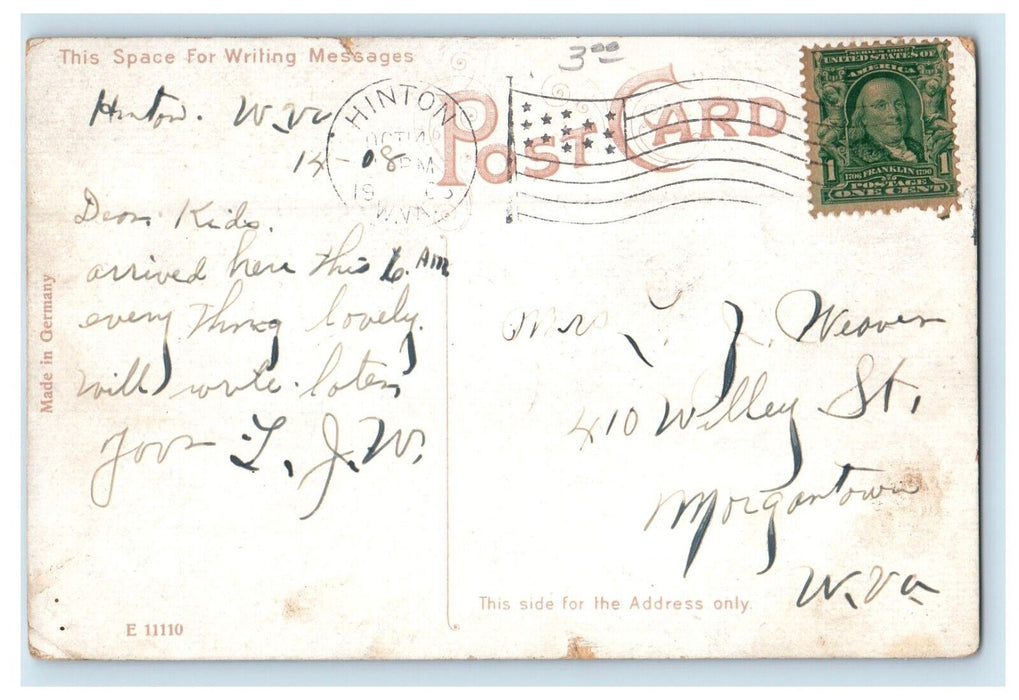 This Space For Writing Messages
3 00
POST CARD
Hinton. W.Va
14 08
HINTON
OCT 14
PM
19
W.VA.
SERIES 1902
UNITED STATES OF
AMERICA
1 1
1706 FRANKLIN 1790
POSTAGE
ONE CENT
Dear Kids.
arrived here this 6. AM
every thing lovely.
will write later,
L. J. W.
Mrs L. J. Weaver
410 Willey St,
Morgantown
W. Va
Made in Germany
E 11110
This side for the Address only.